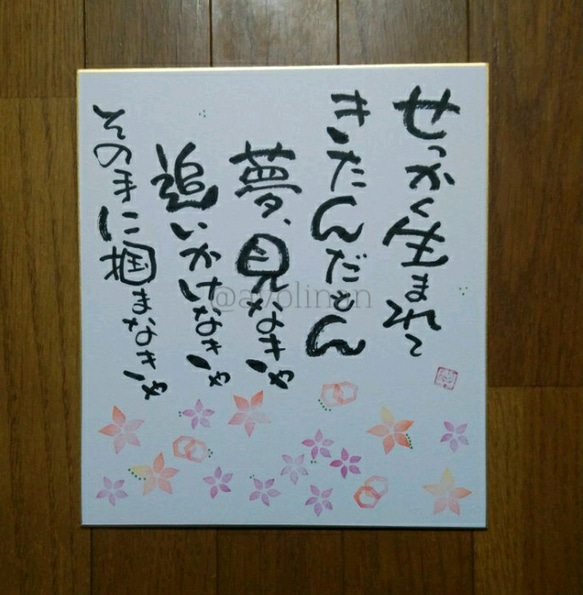 せっかく生まれて
きたんだもん
夢、見なきゃ
追いかけなきゃ
その手に掴まなきゃ